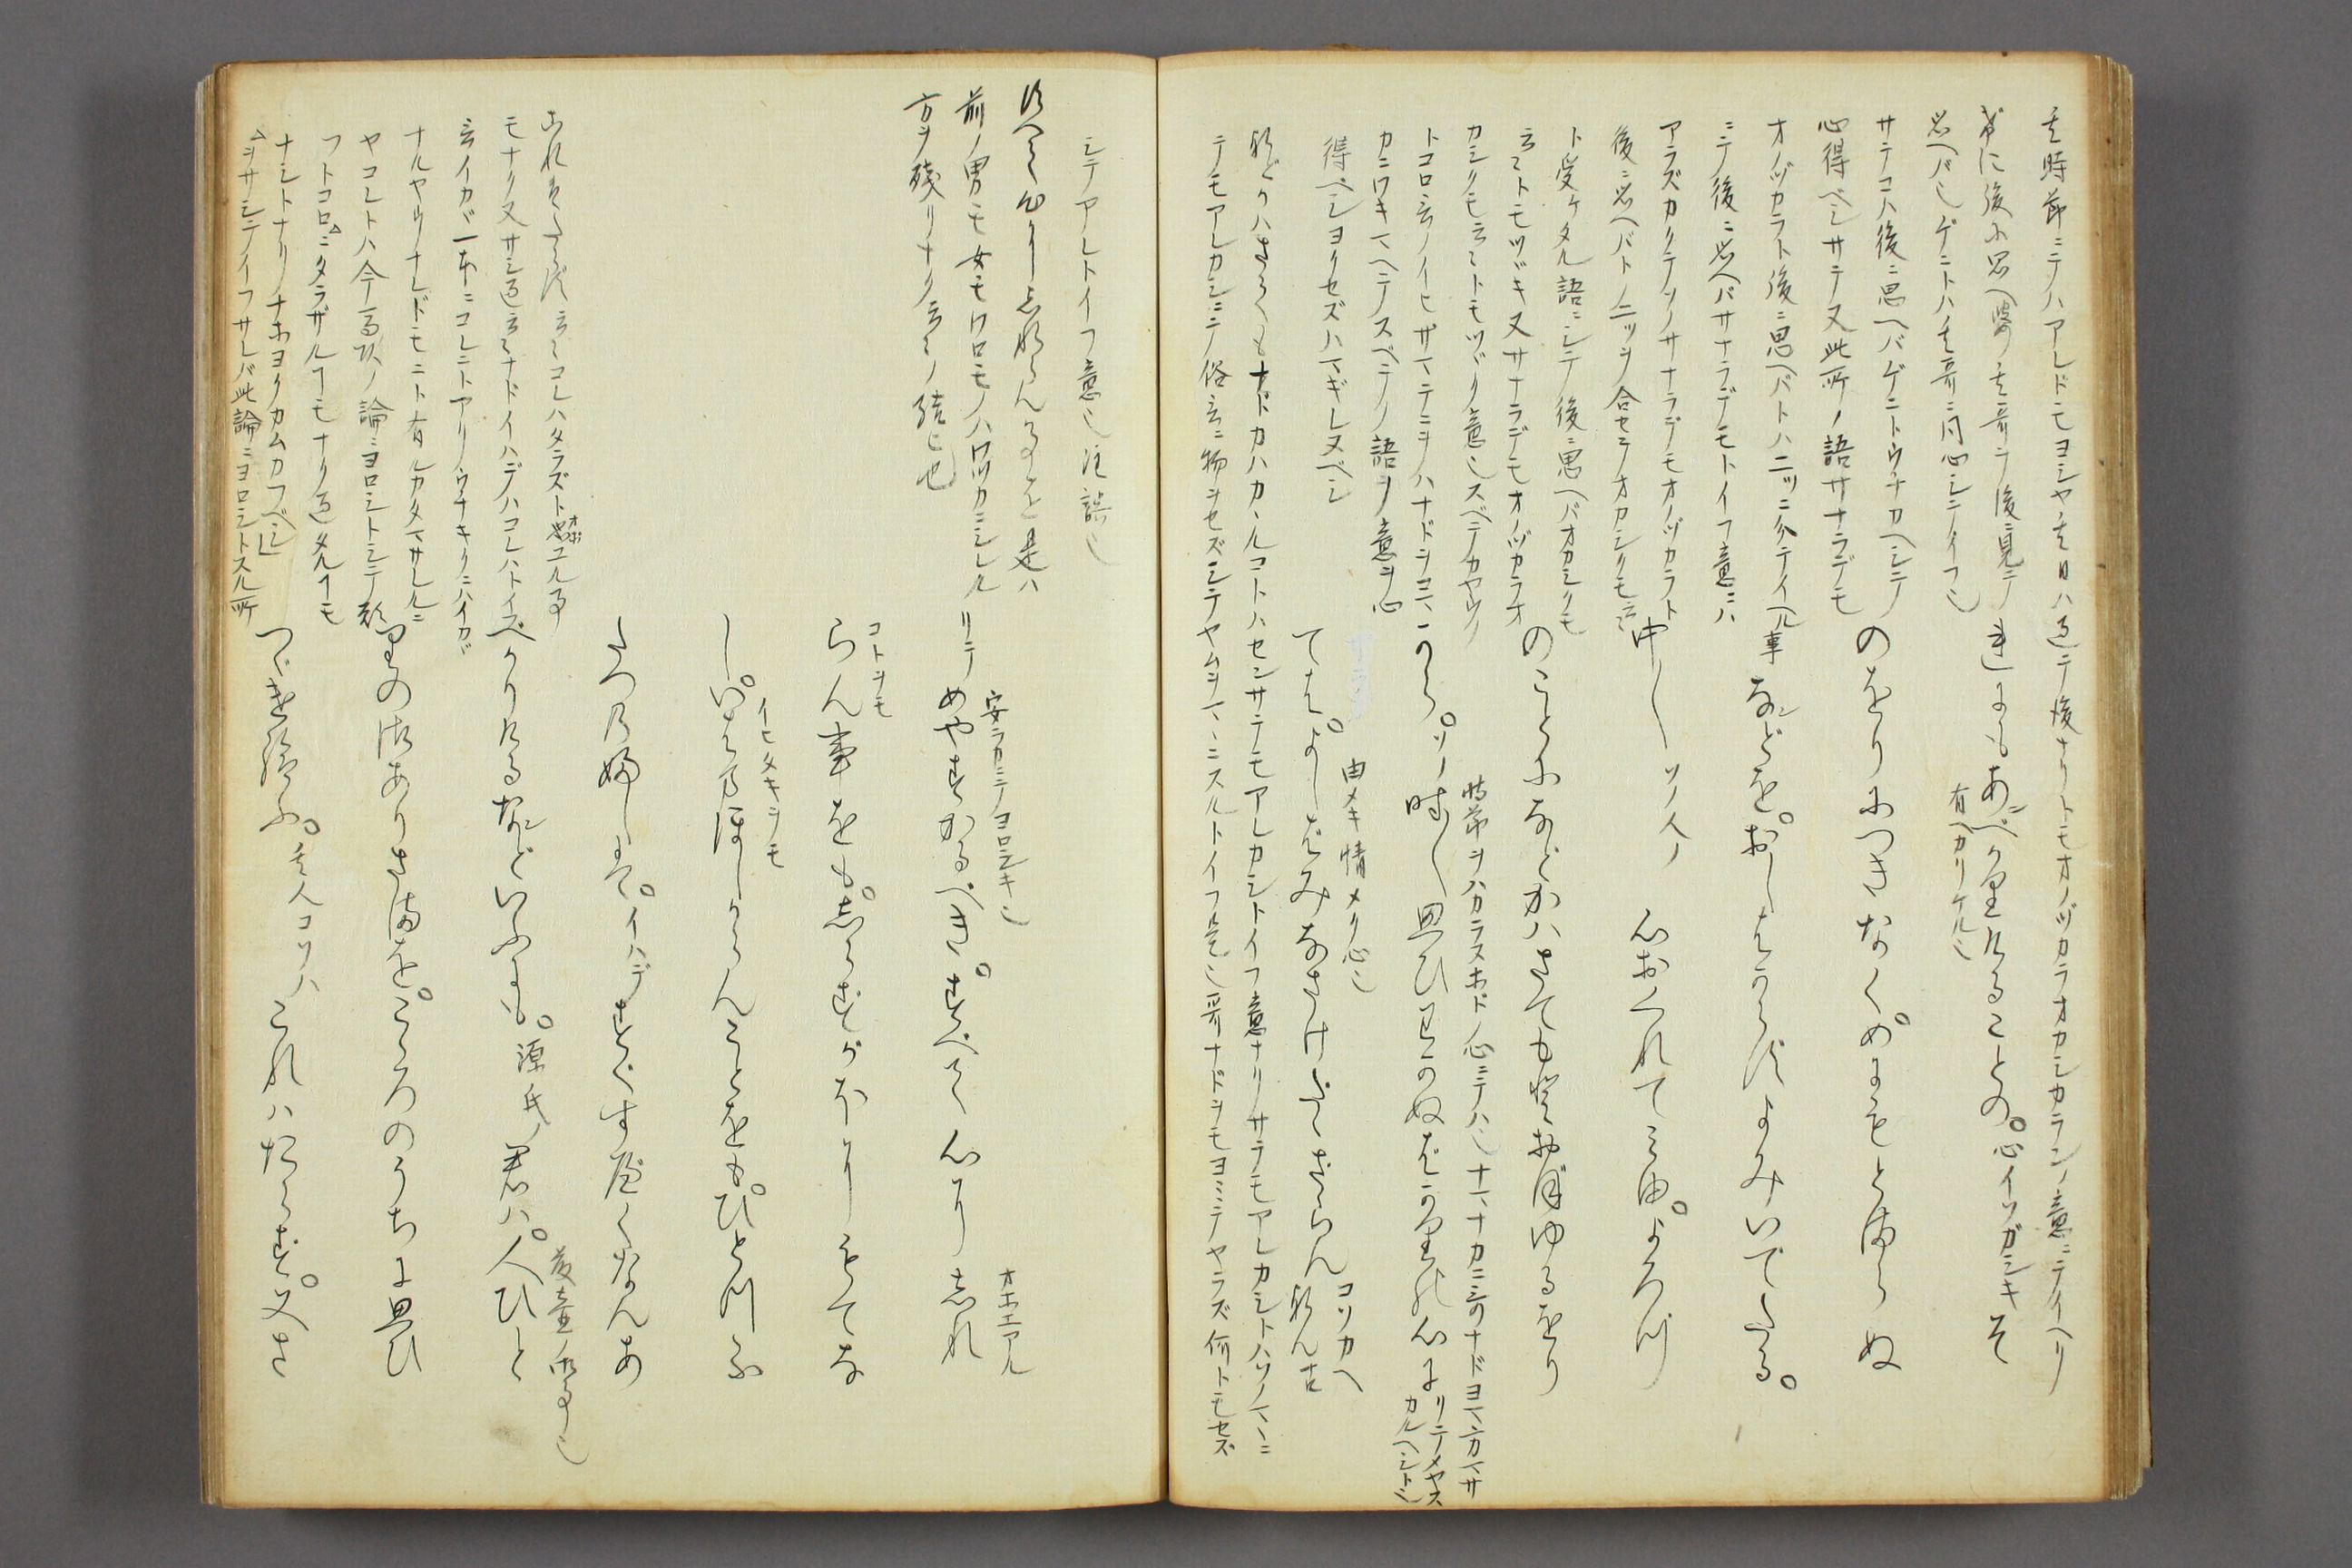 其時節ニテハアレドモヨシヤ其日ハ過テ後ナリトモオノヅカラオカシカランノ意ニテイヘリ
常に後に思へばノ其哥ヲ後ニ見テ
思ヘバ也ゲニトハ其哥ニ同心シテイフ也
サテコハ後ニ思ヘバゲニトウチカヘシテ
心得ベシサテ又此所ノ語サナラデモ
オノヅカラト後ニ思ヘバトハ二ツニ分テイヘル事
ニテ後ニ思ヘバサナラデモトイフ意ニハ
アラズカクテソノサナラデモオノヅカラト
後ニ思ヘバトノ二ツヲ合セテオカシクモ云々
ト受ケタル語ニシテ後ニ思ヘバオカシクモ
云々トモツヾキ又サナラデモオノヅカラオ
カシクモ云々トモツヾク意也スベテカヤウノ
トコロ云ノイヒザマテニヲハナドヲコマ
カニワキマヘテスベテノ語ノ意ヲ心
得ベシヨクセズハマギレヌベシ
などかはさても ナドカハカヽルコトハセンサテモアレカシトイフ意ナリサテモアレカシトハソノマヽニ
テモアレカシニテ俗言ニ物ヲセズシテヤムヲマヽニスルトイフ是也哥ナドヲモヨミテヤラズ何トモセズ
をにもあべかりけることの。心イソガシキ そ
有ベカリケル也
のをりにつきなく。めにもとまらぬ
などを。おしはからずよみいでたる。
中〳〵 ソノ人ノ 心おくれてみゆ。よろづ
のことになどかはさてもとおぼゆるをり
から。ソノ時〳〵思ひわかぬばかりの心に
時節ヲハカラスホドノ心ニテハ也
ては。よしばみなさけだゝざらんなん
由メキ情メク心也
コソカヘ
リテメヤス
カルヘシト也
シテアレトイフ意也注誤也
すべて心にしれらんことを 是ハ
前ノ男モ女モワロモノハワヅカニシレル
方ヲ残リナク云々ノ結ヒ也
これはたらず 云々コレハタラズト おぼユル事
モナク又サシ過云々ナドイハデハコレハトイヘ
云イカヾ一本ニコレニトアリノウチキクニハイカヾ
ナルヤウナレドモニト有ルカタマサレルニ
ヤコレトハ今一ノ論ニヨロシトシテ
フトコロニタラザルコモナク過タルコモ
ナシトナリナホヨクカムカフベシ
ヲサシテイフサレバ此論ニヨロシトスル所
めやすかるべき。すべて心にしれ
安ラカニテヨロシキ也
オホエアル
らん事をも。しらずがほにもてな
コトヲモ
し。いはまほしからんことをも。ひとつふ
イヒタキヲモ
たつのふしは。イハデすぐすべくなんあ
べかりけるなどいふにも。源氏ノ君ハ。人ひと
藤壺ノ御事也
りの御ありさまを。こゝろのうちに思ひ
つゞけ給ふ。其人コソハ これハたらず。又さ